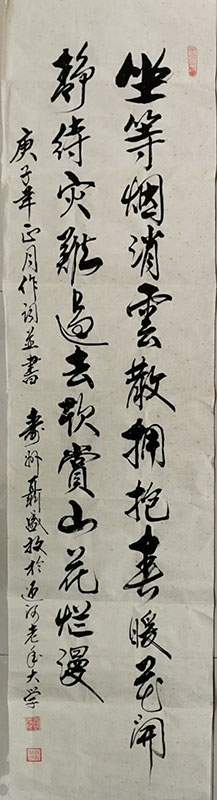 坐等烟消雲散拥抱春暖花开
静待灾难過去欣赏山花烂漫
庚子年正月作词並書 寿州聂盛放於通河老年大学